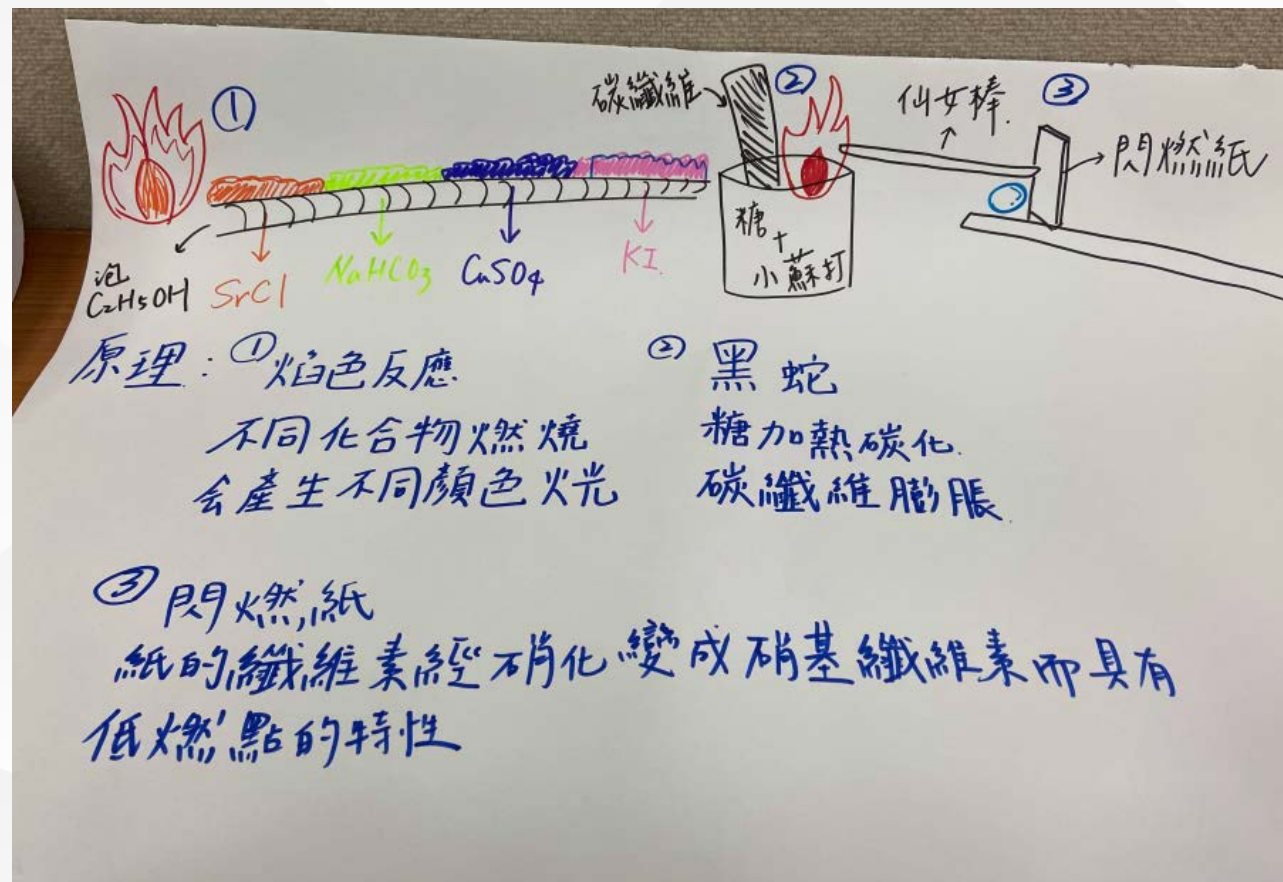 ①
碳纖維
②
仙女棒.
③
閃燃紙
糖
+
小蘇打
泡
C₂H₅OH
SrCl
NaHCO₃
CuSO₄
KI
原理:①焰色反應
不同化合物燃燒
会產生不同顏色火光
② 黑蛇
糖加熱碳化.
碳纖維膨脹.
③ 閃燃紙
紙的纖維素經硝化變成硝基纖維素而具有
低燃點的特性